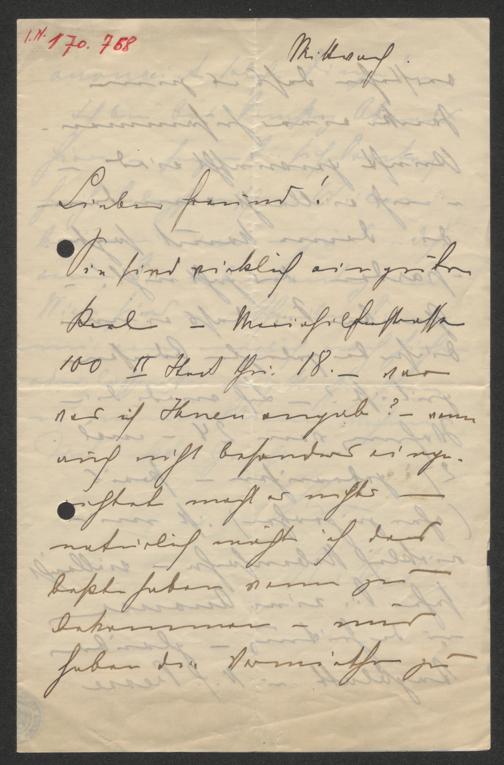 I.N. 170.768
Mittwoch.
Lieber Freund!
Sie sind wirklich ein guter
Kerl – Mariahilferstrasse
100 II Stock Thür 18. – war
was ich Ihnen angab? – wenn
auch nicht besonders einge-
richtet macht es nichts —
natürlich möcht ich das
beste haben wenn zu
bekommen – und
haben die Vermiether zu